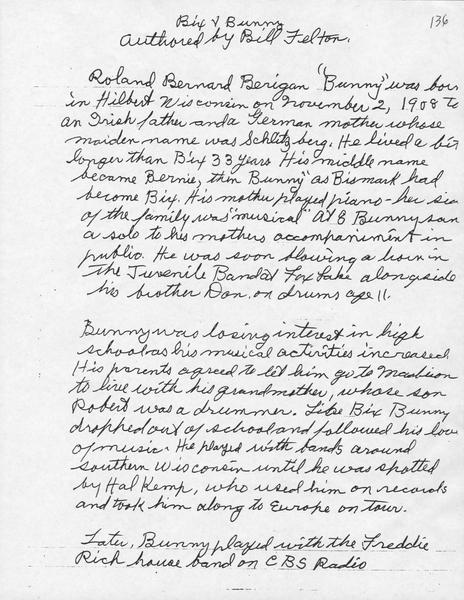 136
Bix & Bunny
Authored by Bill Felton.
Roland Bernard Berigan "Bunny" was born
in Hilbert Wisconsin on November 2, 1908 to
an Irish father and a German mother whose
maiden name was Schlitzberg. He lived a bit
longer than Bix 33 years His middle name
became Bernie, then Bunny" as Bismark had
become Bix. His mother played piano - her side
of the family was "musical" At 8 Bunny sang
a solo to his mothers accompaniment in
public. He was soon blowing a horn in
the Juvenile Band at Fox Lake alongside
his brother Don. on drums age 11.
Bunny was losing interest in high
school as his musical activities increased
His parents agreed to let him go to Madison
to live with his grandmother, whose son
Robert was a drummer. Like Bix Bunny
dropped out of school and followed his love
of music. He played with bands around
southern Wisconsin until he was spotted
by Hal Kemp, who used him on records
and took him along to Europe on tour.
Later, Bunny played with the Freddie
Rich house band on CBS Radio